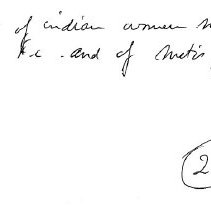 of indian women
. and of Metis
2